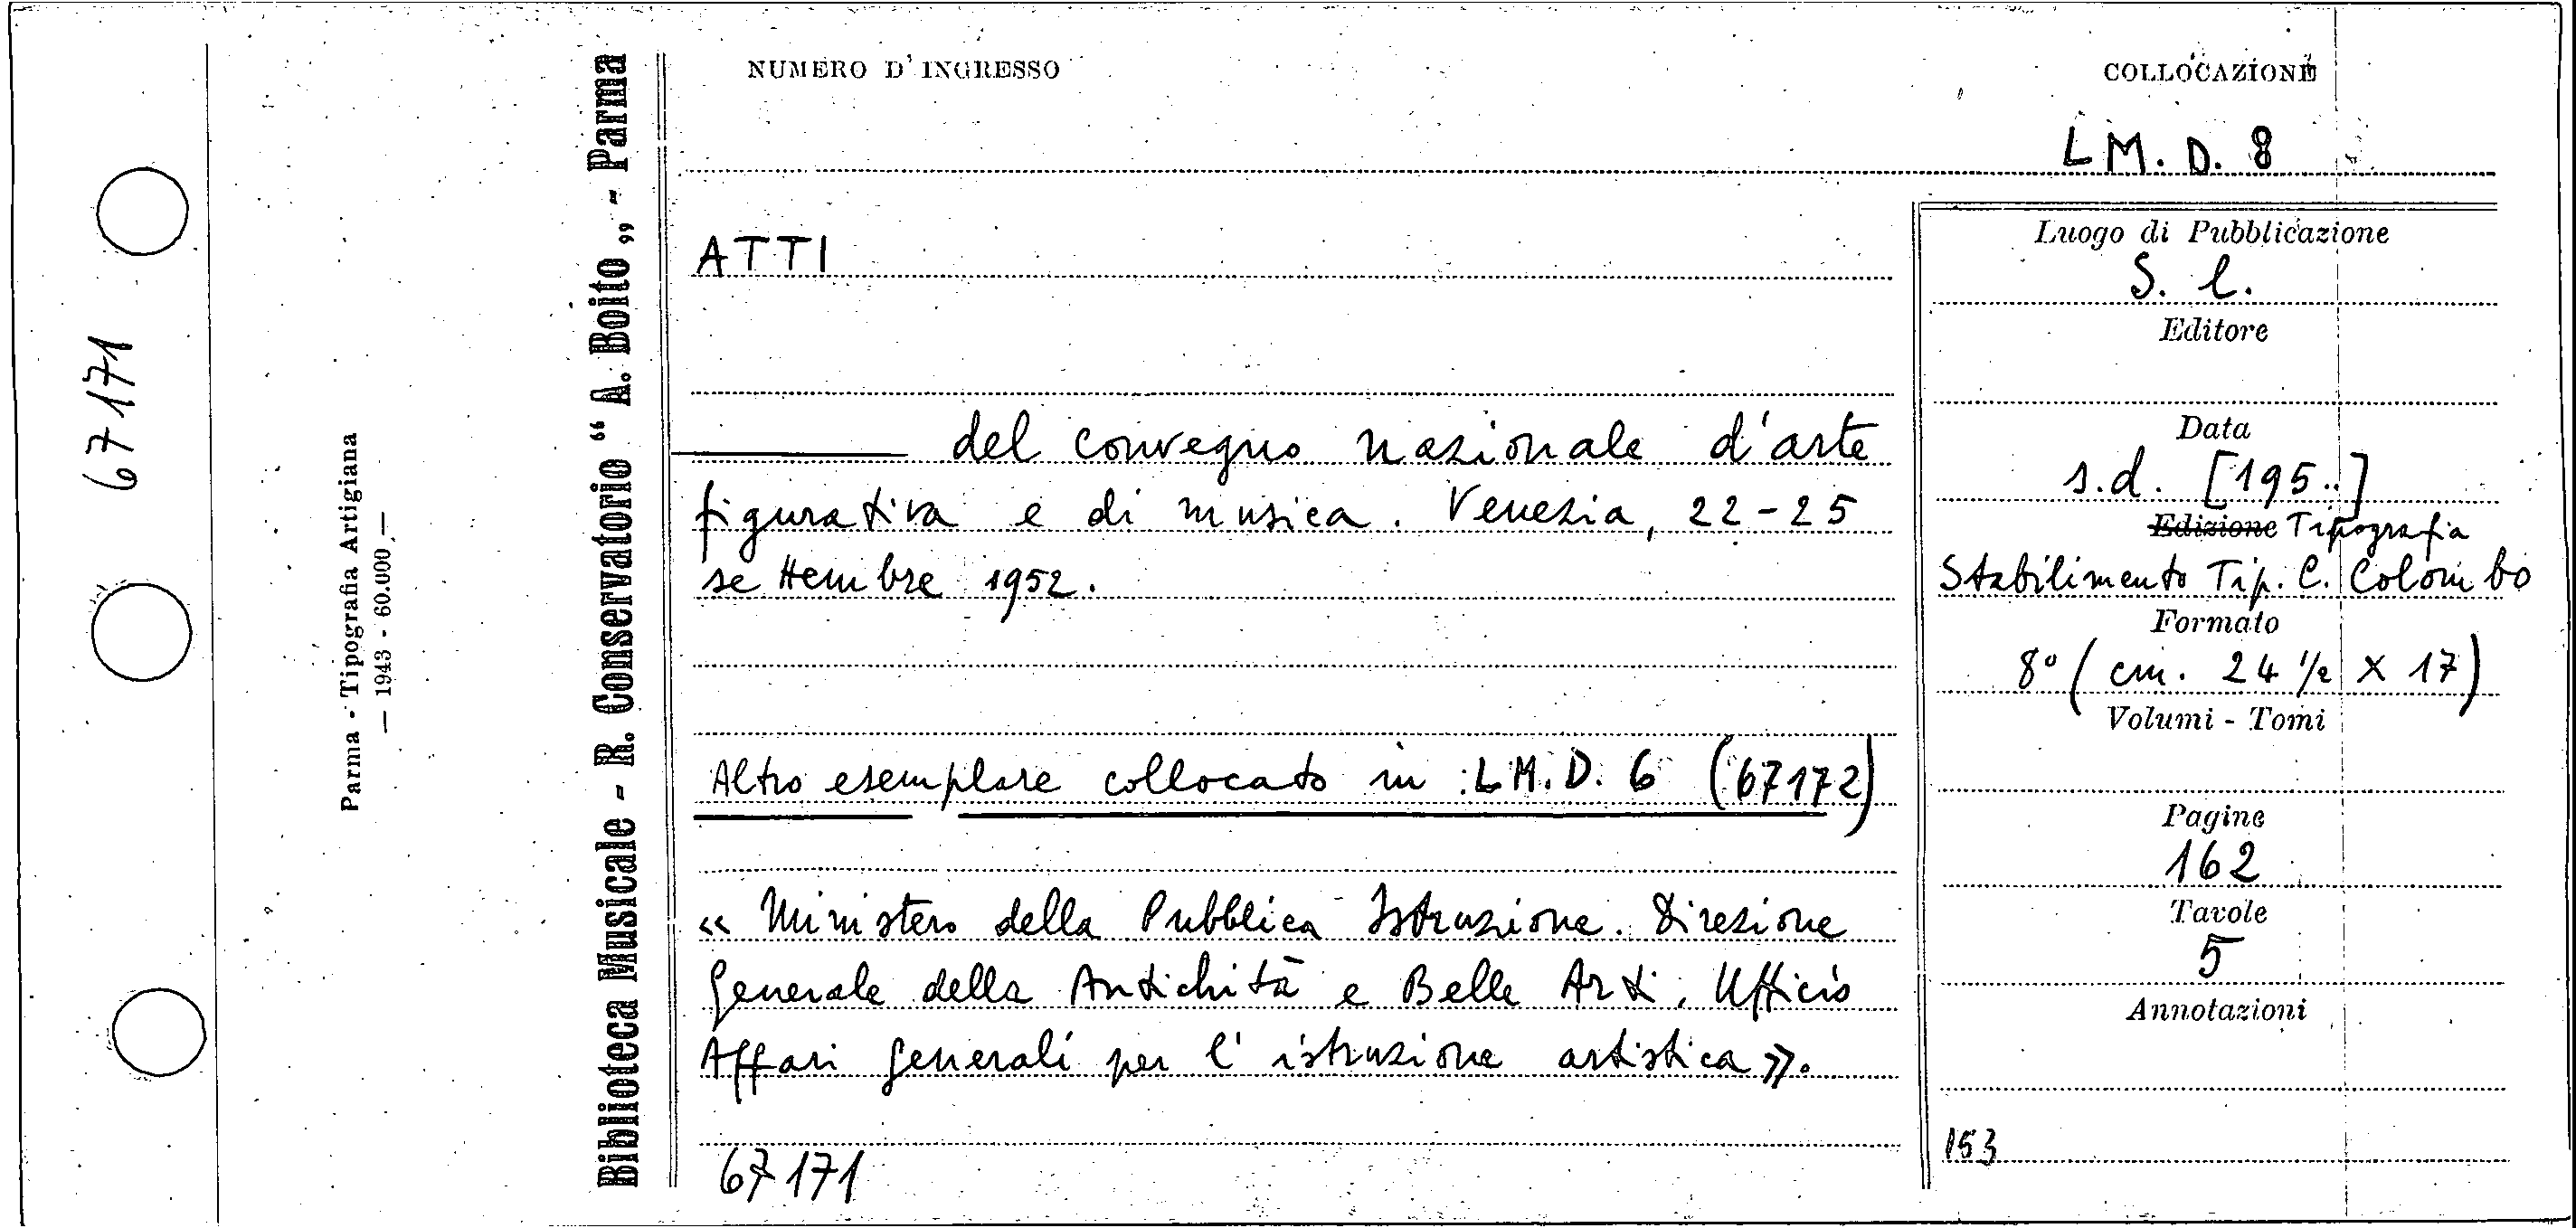 67171
Parma - Tipografia Artigiana
— 1943 - 60.000 —
Biblioteca Musicale - R. Conservatorio “ A. Boito „ - Parma
NUMERO D' INGRESSO
COLLOCAZIONE
LM. D. 8
ATTI
del convegno nazionale d'arte
figurativa e di musica. Venezia, 22-25
settembre 1952.
Altro esemplare collocato in LM. D. 6 (67172)
« Ministero della Pubblica Istruzione. Direzione
Generale della Antichità e Belle Arti, Ufficio
Affari generali per l'istruzione artistica».
67171
Luogo di Pubblicazione
S. l.
Editore
Data
s.d. [195..]
Edizione Tipografia
Stabilimento Tip. C. Colombo
Formato
8° (cm. 24 1/2 X 17)
Volumi - Tomi
Pagine
162
Tavole
5
Annotazioni
153